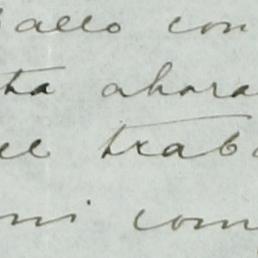 allo con
ta ahora
el trab
mi com